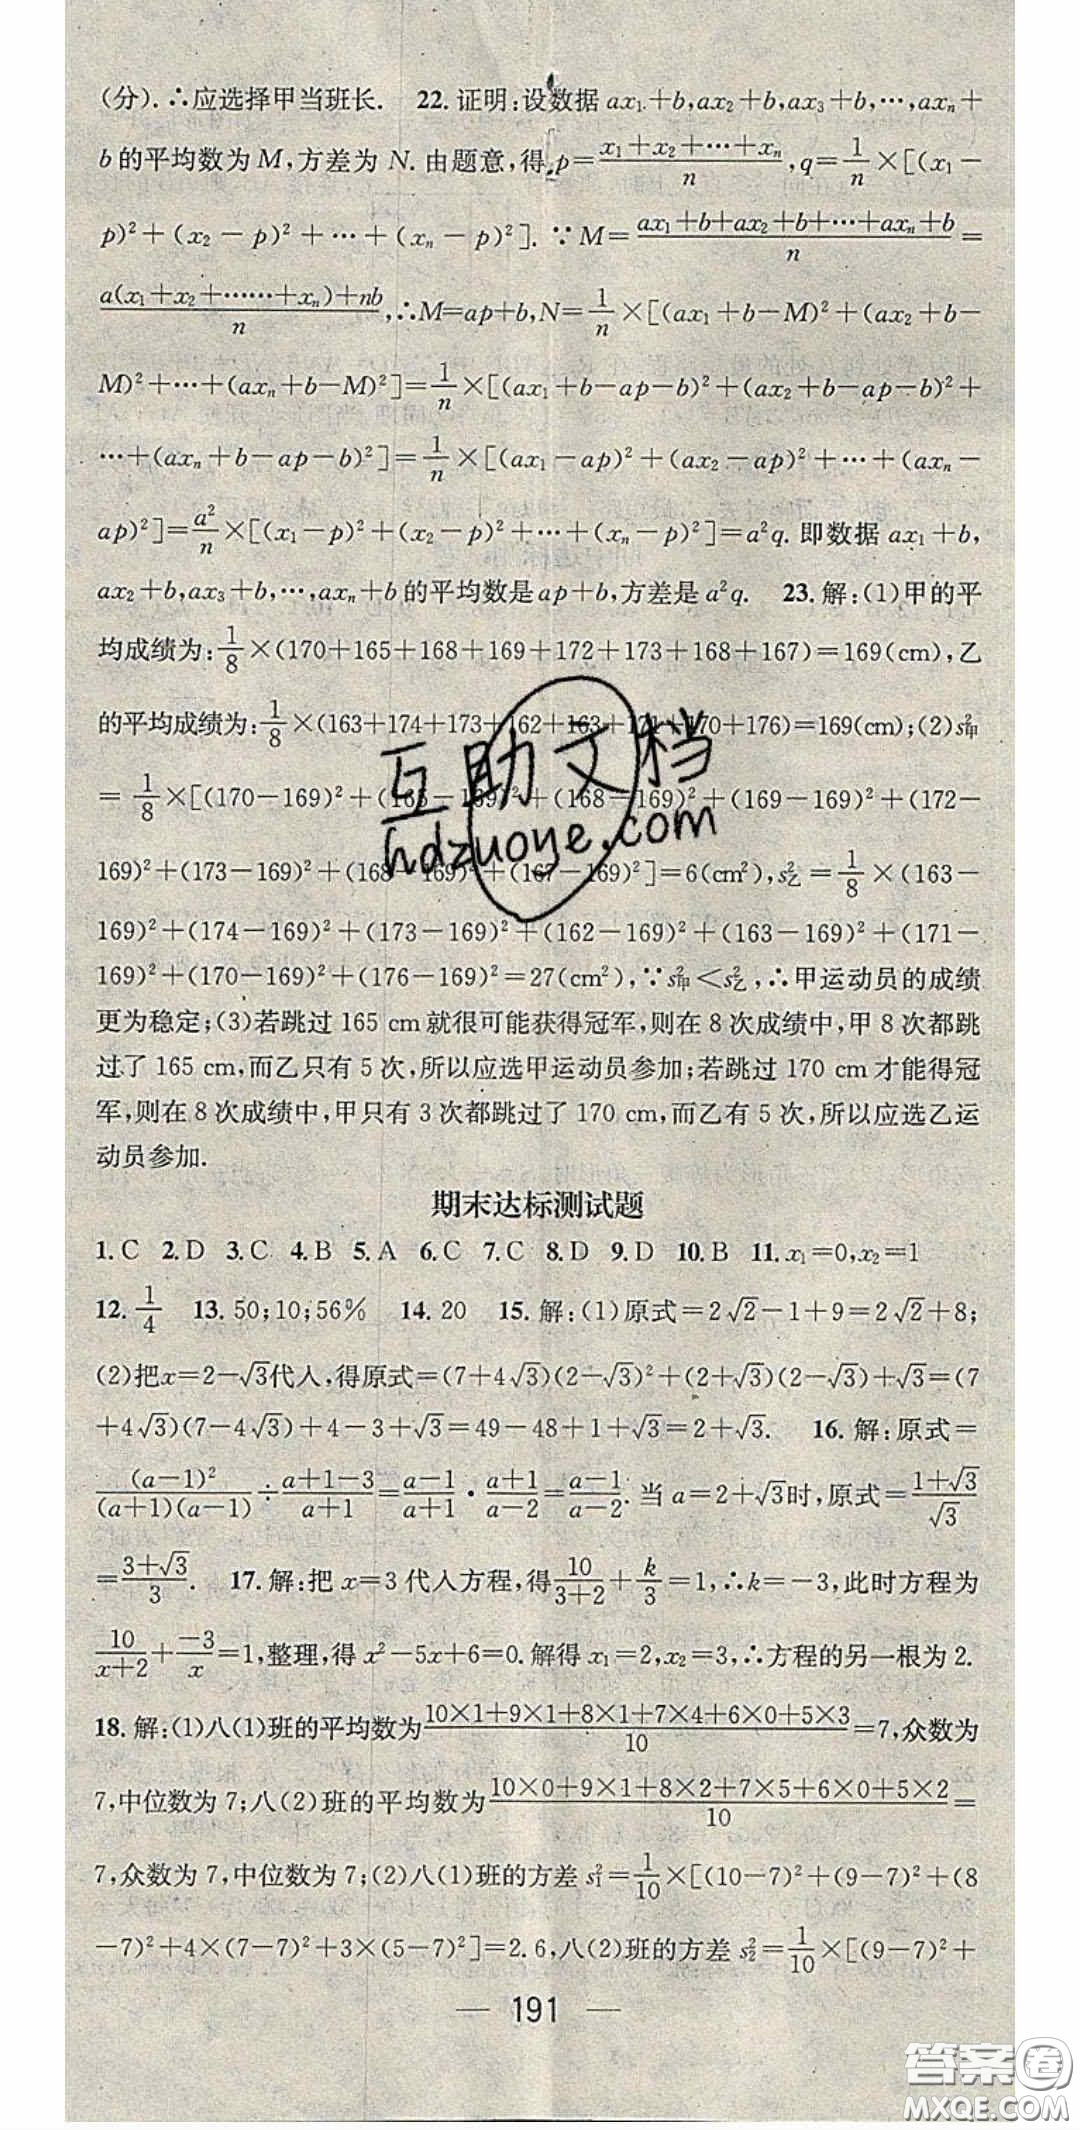 (分). ∴应选择甲当班长. 22. 证明:设数据 ax₁+b,ax₂+b,ax₃+b,…,axₙ+
b的平均数为M,方差为N. 由题意,得 p=(x₁+x₂+…+xₙ)/n,q=1/n×[(x₁-
p)²+(x₂-p)²+…+(xₙ-p)²]. ∵M=(ax₁+b+ax₂+b+…+axₙ+b)/n=
(a(x₁+x₂+……+xₙ)+nb)/n,∴M=ap+b,N=1/n×[(ax₁+b-M)²+(ax₂+b-
M)²+…+(axₙ+b-M)²]=1/n×[(ax₁+b-ap-b)²+(ax₂+b-ap-b)²+
…+(axₙ+b-ap-b)²]=1/n×[(ax₁-ap)²+(ax₂-ap)²+…+(axₙ-
ap)²]=a²/n×[(x₁-p)²+(x₂-p)²+…+(xₙ-p)²]=a²q. 即数据 ax₁+b,
ax₂+b,ax₃+b,…,axₙ+b的平均数是ap+b,方差是a²q. 23. 解:(1)甲的平
均成绩为:1/8×(170+165+168+169+172+173+168+167)=169(cm),乙
的平均成绩为:1/8×(163+174+173+162+163+171+170+176)=169(cm);(2)s²甲
=1/8×[(170-169)²+(165-169)²+(168-169)²+(169-169)²+(172-
169)²+(173-169)²+(168-169)²+(167-169)²]=6(cm²),s²乙=1/8×(163-
169)²+(174-169)²+(173-169)²+(162-169)²+(163-169)²+(171-
169)²+(170-169)²+(176-169)²=27(cm²),∵s²甲<s²乙,∴甲运动员的成绩
更为稳定;(3)若跳过 165 cm就很可能获得冠军,则在8次成绩中,甲8次都跳
过了 165 cm,而乙只有5次,所以应选甲运动员参加;若跳过 170 cm才能得冠
军,则在8次成绩中,甲只有3次都跳过了 170 cm,而乙有5次,所以应选乙运
动员参加.
期末达标测试题
1. C 2. D 3. C 4. B 5. A 6. C 7. C 8. D 9. D 10. B 11. x₁=0,x₂=1
12. 1/4 13. 50;10;56% 14. 20 15. 解:(1)原式=2√2-1+9=2√2+8;
(2)把x=2-√3代入,得原式=(7+4√3)(2-√3)²+(2+√3)(2-√3)+√3=(7
+4√3)(7-4√3)+4-3+√3=49-48+1+√3=2+√3. 16. 解:原式=
(a-1)²/((a+1)(a-1))÷(a+1-3)/(a+1)=(a-1)/(a+1)·(a+1)/(a-2)=(a-1)/(a-2). 当a=2+√3时,原式=(1+√3)/√3
=(3+√3)/3. 17. 解:把x=3代入方程,得10/(3+2)+k/3=1,∴k=-3,此时方程为
10/(x+2)+(-3)/x=1,整理,得x²-5x+6=0. 解得x₁=2,x₂=3,∴方程的另一根为2.
18. 解:(1)八(1)班的平均数为(10×1+9×1+8×1+7×4+6×0+5×3)/10=7,众数为
7,中位数为7;八(2)班的平均数为(10×0+9×1+8×2+7×5+6×0+5×2)/10=
7,众数为7,中位数为7;(2)八(1)班的方差s₁²=1/10×[(10-7)²+(9-7)²+(8
-7)²+4×(7-7)²+3×(5-7)²]=2.6,八(2)班的方差s₂²=1/10×[(9-7)²+
— 191 —
互助文档
hdzuoye.com
答案圈
MXQE.COM